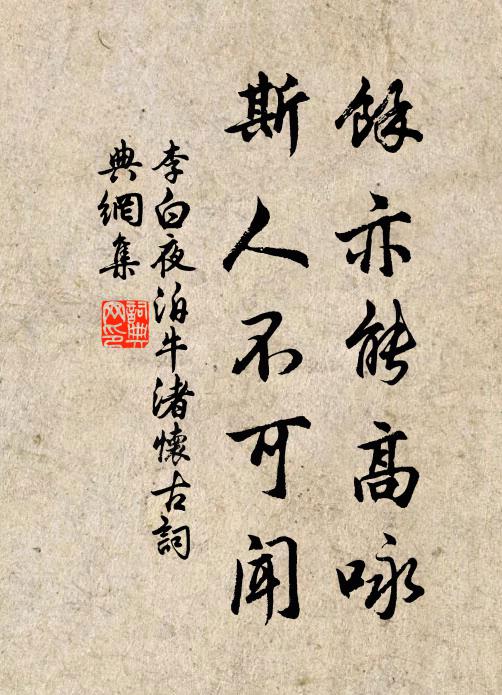 餘亦能高咏
斯人不可聞
李白夜泊牛渚懷古詞
典網集
詞典
网印